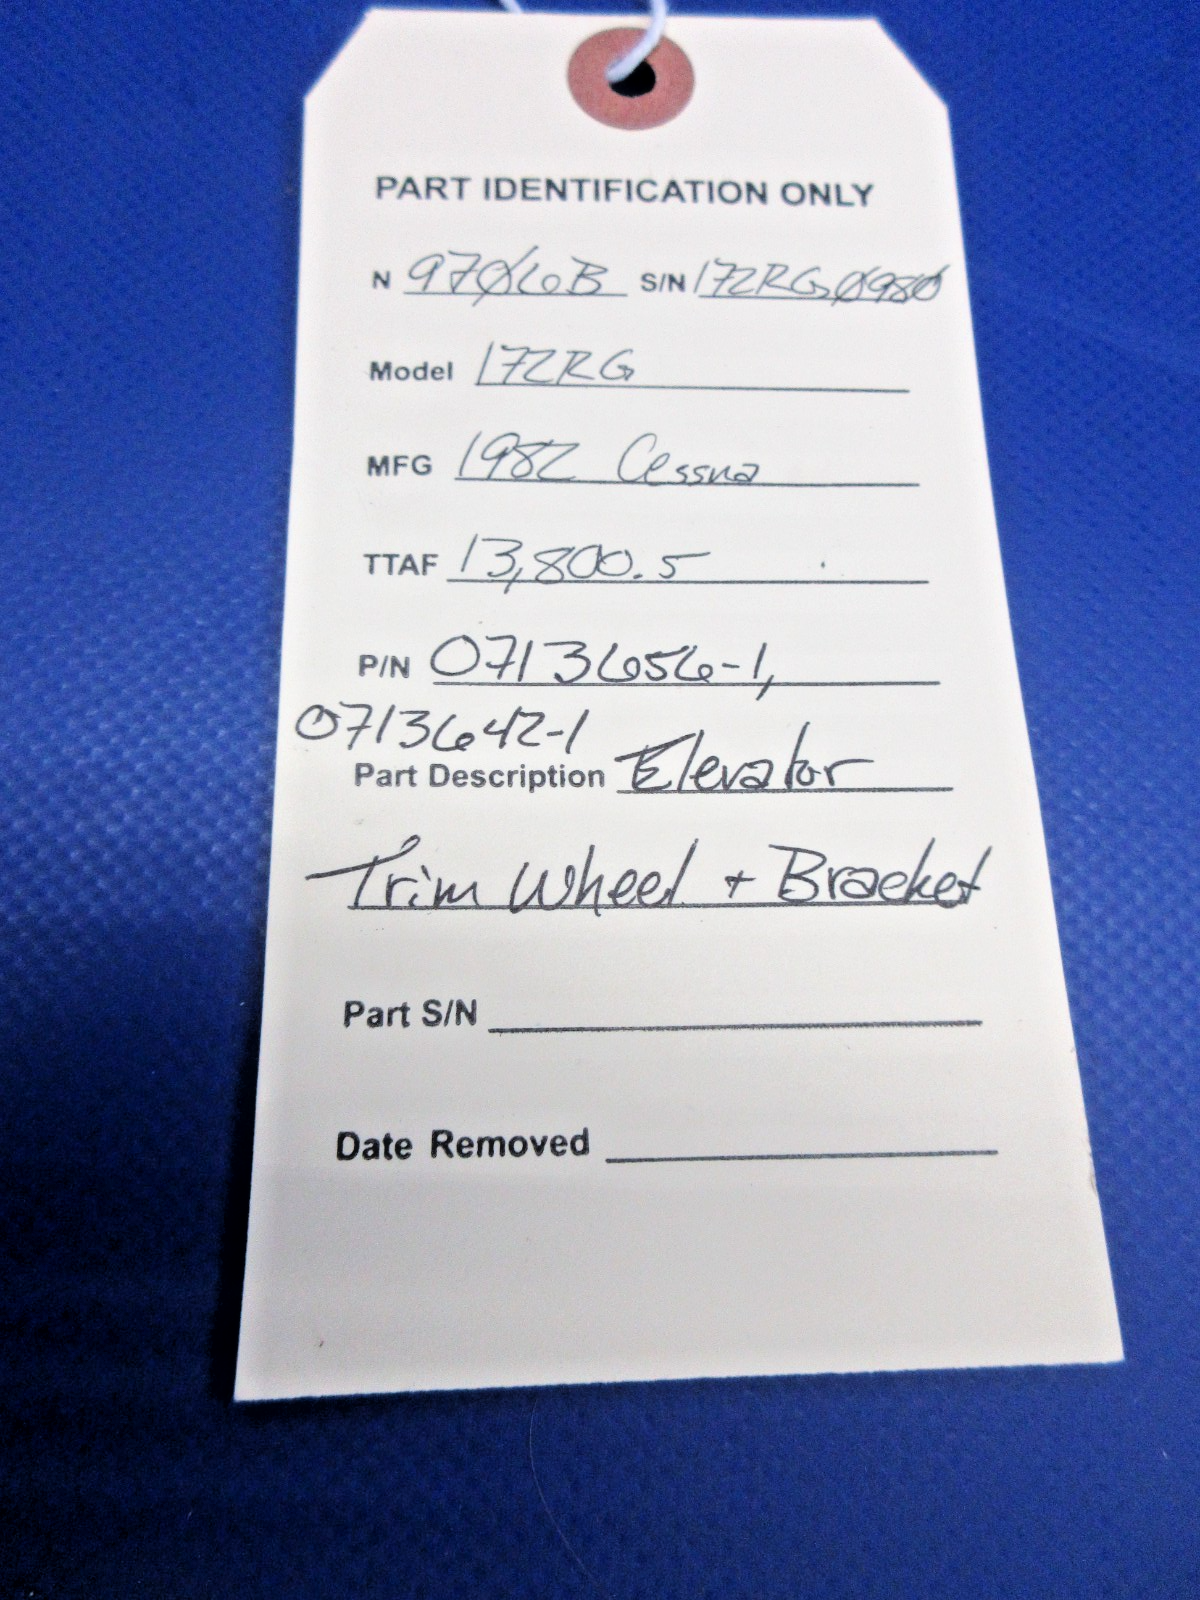 PART IDENTIFICATION ONLY
N 9706B S/N 172RG0980
Model 172RG
MFG 1982 Cessna
TTAF 13,800.5
P/N 0713656-1,
0713642-1
Part Description Elevator
Trim Wheel + Bracket
Part S/N
Date Removed